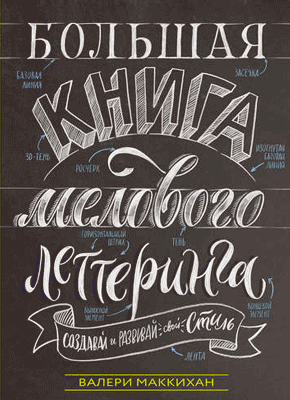 БОЛЬШАЯ
БАЗОВАЯ
ЛИНИЯ
ЗАСЕЧКА
КНИГА
3D-ТЕНЬ
РОСЧЕРК
ИЗОГНУТАЯ
БАЗОВАЯ
ЛИНИЯ
мелового
ГОРИЗОНТАЛЬНЫЙ
ШТРИХ
ТЕНЬ
леттеринга
ВЫНОСНОЙ
ЭЛЕМЕНТ
КОНЦЕВОЙ
ЭЛЕМЕНТ
СОЗДАВАЙ и РАЗВИВАЙ свой СТИЛЬ
ЛЕНТА
ВАЛЕРИ МАККИХАН